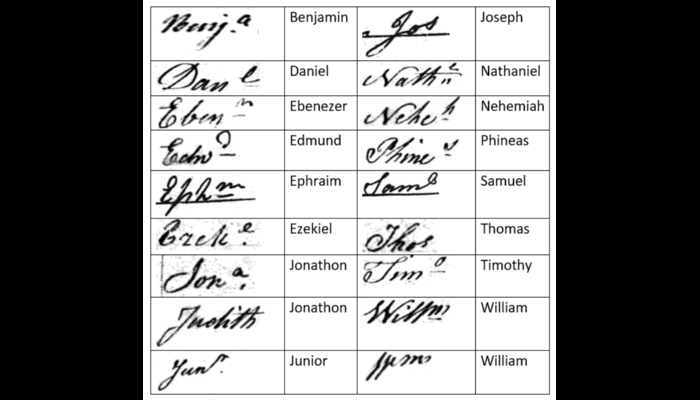 Benj.a Benjamin Jos Joseph
Danl Daniel Nathl Nathaniel
Eben Ebenezer Neheh Nehemiah
Edmund Phines Phineas
Ephm Ephraim Saml Samuel
Ezeke. Ezekiel Thos Thomas
Jona. Jonathon Timo Timothy
Judith Jonathon Willm William
Junr. Junior Wm William